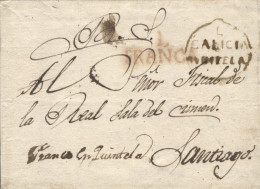 R. S.
FRANCO
GALICIA
Al Señor Fiscal de
la Real Sala del Crimen
Franca en Quintela Santiago.